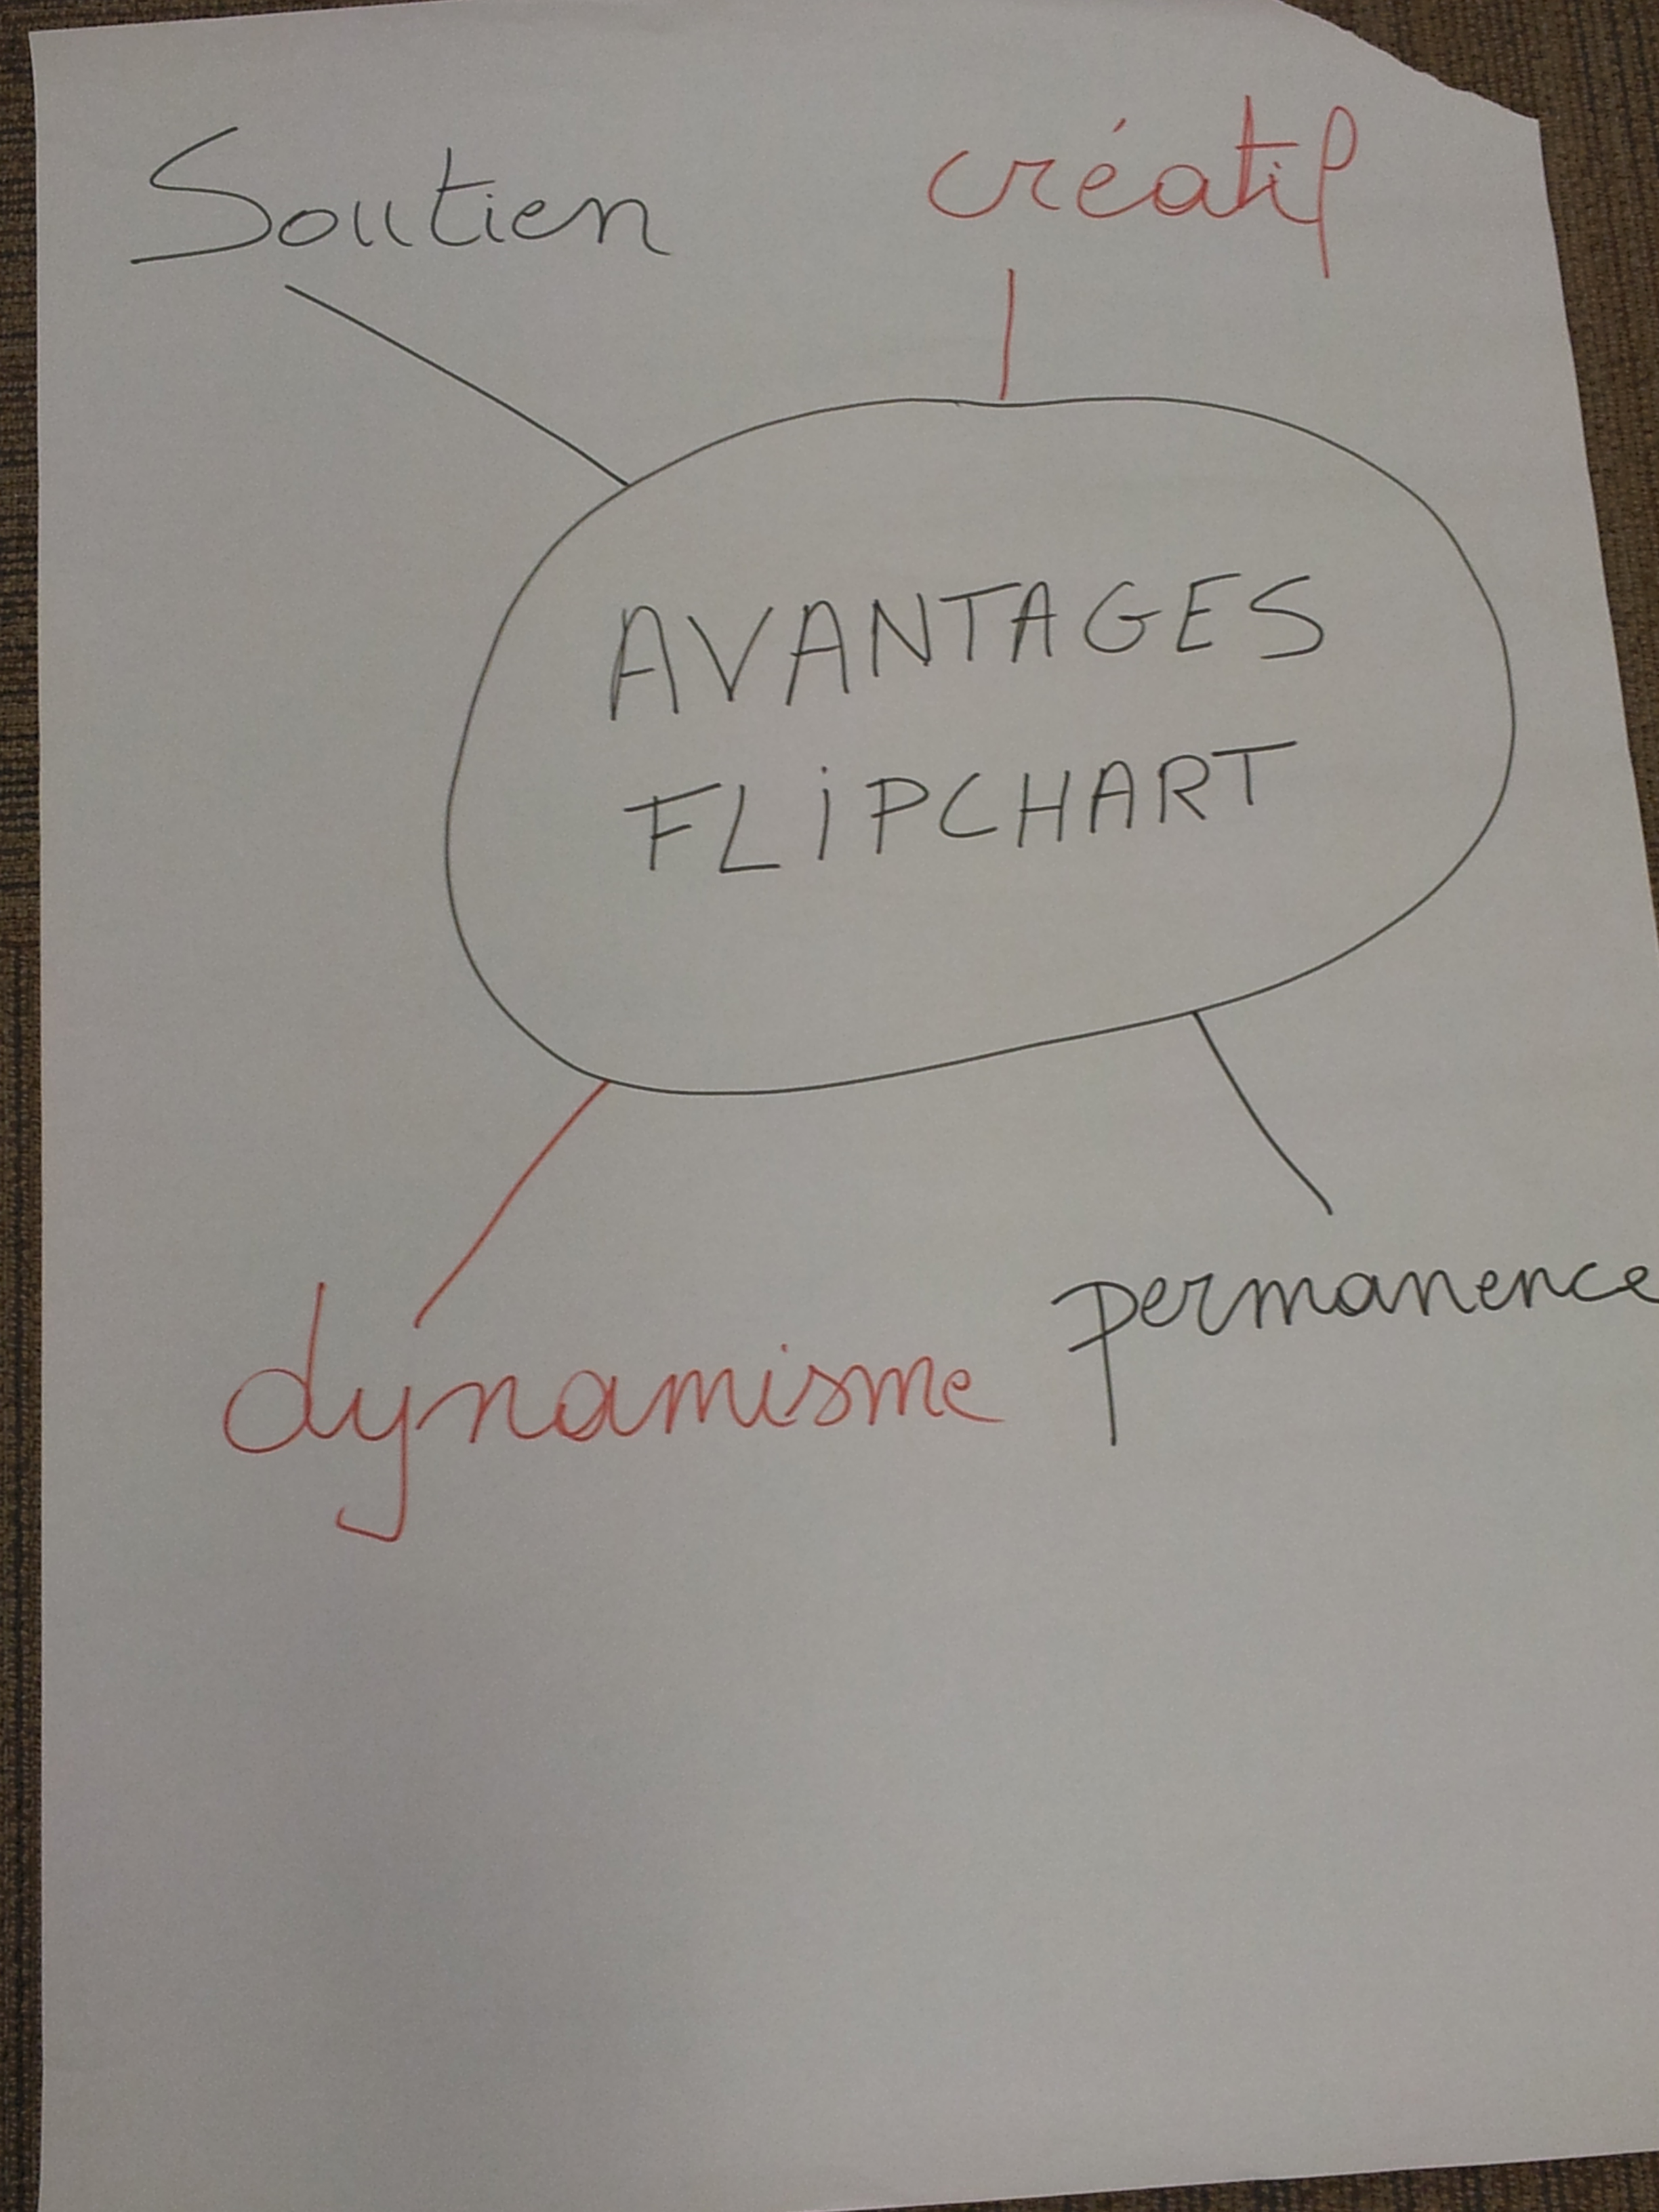 Soutien
créatif
AVANTAGES
FLiPCHART
dynamisme
permanence